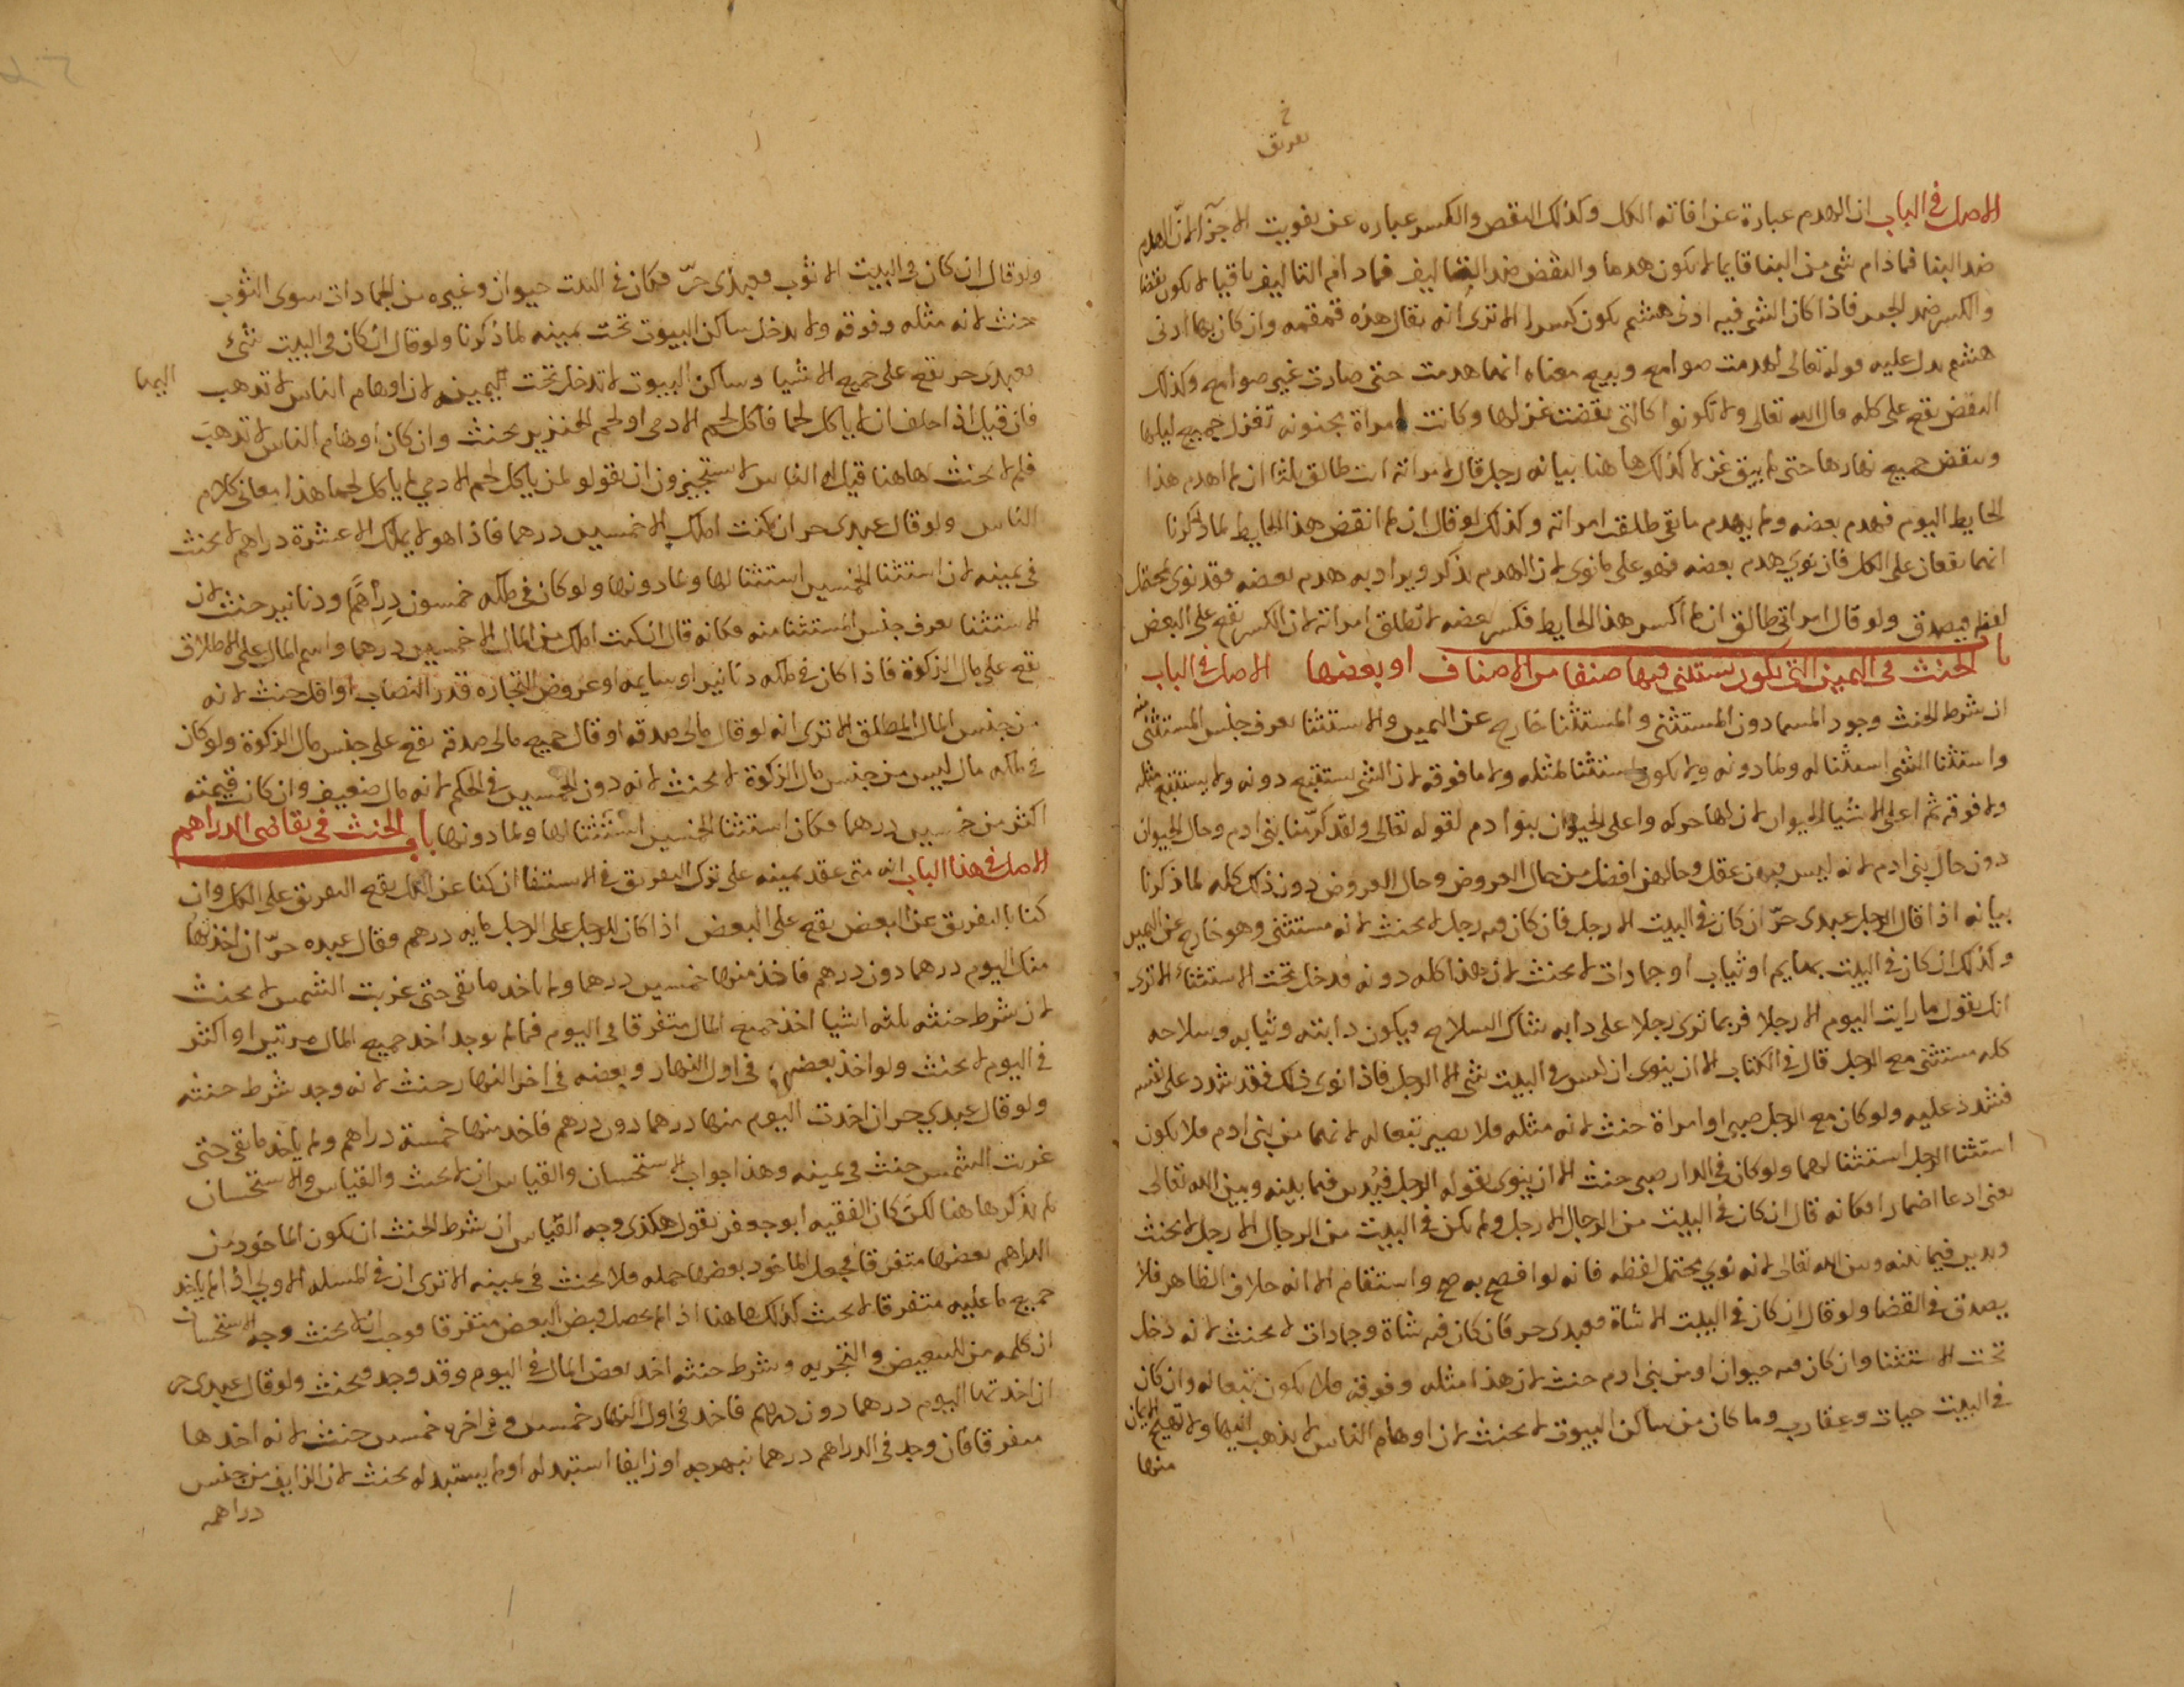 خ
تفريق
الاصل في الباب ان الهدم عبارة عن افاتة الكل وكذلك النقض والكسر عباره عن تفويت الاجزا لان الهدم
ضد البنا فما دام شي من البنا قايما لا يكون هدما والنقض ضد التاليف فما دام التاليف باقيا لا يكون نقضا
والكسر ضد الجبر فاذا كان الشي فيه ادنى هشم يكون كسرا الا ترى انه يقال هذه قمقمه وان كان بها ادنى
هشم يدل عليه قوله تعالى لهدمت صوامع وبيع معناه انها هدمت حتى صارت غير صوامع وكذلك
النقض يقع على كله قال الله تعالى ولا تكونوا كالتي نقضت غزلها وكانت امراة مجنونه تغزل جميع ليلها
وتنقض جميع نهارها حتى لم يبق غزلا كذلك هاهنا بيانه رجل قال لامراته انت طالق ثلثا ان لم اهدم هذا
الحايط اليوم فهدم بعضه ولم يهدم ما بقي طلقت امراته وكذلك لو قال ان لم انقض هذا الحايط لما ذكرنا
انهما يقعان على الكل فان نوي هدم بعضه فهو على ما نوى لان الهدم يذكر ويراد به هدم بعضه فقد نوى محتمل
لفظه فيصدق ولو قال امراتي طالق ان لم اكسر هذا الحايط فكسر بعضه لا تطلق امراته لان الكسر يقع على البعض
باب الحنث في اليمين التي يكون يستثني فيها صنفا من الاصناف او بعضها الاصل في الباب
ان شرط الحنث وجود المسما دون المستثنى والمستثنا خارج عن اليمين والاستثنا يعرف جنس المستثنى منه
واستثنا الشي استثنا له ولما دونه ولا يكون استثنا لمثله ولا ما فوقه لان الشي يستتبع دونه ولا يستتبع مثله
ولا فوقه ثم اعلى الاشيا الحيوان لان لها حركه واعلى الحيوان بنو ادم لقوله تعالى ولقد كرّمنا بني ادم وحال الحيوان
دون حال بني ادم لانه ليس فيهن عقل وحالهن افضل من حال العروض وحال العروض دون ذلك كله لما ذكرنا
بيانه اذا قال الرجل عبدى حرّ ان كان في البيت الا رجل فان كان فيه رجل لا يحنث لانه مستثنى وهو خارج عن اليمين
وكذلك ان كان في البيت بهايم او ثياب او جمادات لا يحنث لان هذا كله دونه فدخل تحت الاستثناء الا ترى
انك تقول ما رايت اليوم الا رجلا فربما ترى رجلا على دابه شاك السلاح فيكون دابته وثيابه وسلاحه
كله مستثنى مع الرجل قال في الكتاب الا ان ينوى ان ليس في البيت شي الا الرجل فاذا نوى ذلك فقد شدد على نفسه
فشدد عليه ولو كان مع الرجل صبي او امراة حنث لانه مثله فلا يصير تبعا له لانهما من بني ادم فلا يكون
استثنا الرجل استثنا لهما ولو كان في الدار صبى حنث الا ان ينوى بقوله الرجل فيدين فيما بينه وبين الله تعالى
يعنى ادعا اضمارا فكانه قال ان كان في البيت من الرجال الا رجل ولم يكن في البيت من الرجال الا رجل لا يحنث
ويدين فيما بينه وبين الله تعالى لانه نوي محتمل لفظه فانه لو افصح به صح واستقام الا انه خلاف الظاهر فلا
يصدق في القضا ولو قال ان كان في البيت الا شاة فعبدى حر فان كان فيه شاة وجمادات لا يحنث لانه دخل
تحت الاستثنا وان كان فيه حيوان او من بني ادم حنث لان هذا مثله وفوقه فلا يكون تبعا له وان كان
في البيت حيات وعقارب وما كان من ساكن البيوت لا يحنث لان اوهام الناس لا يذهب اليها ولا تقع الايمان
منها
ولو قال ان كان في البيت الا ثوب فعبدى حرّ فكان في البيت حيوان وغيره من الجمادات سوى الثوب
حنث لانه مثله وفوقه ولا يدخل ساكن البيوت تحت يمينه لما ذكرنا ولو قال ان كان في البيت شئ
فعبدى حر يقع على جميع الاشيا وساكن البيوت لا تدخل تحت اليمين لان اوهام الناس لا تدهب اليها
فان قيل اذا حلف ان لا ياكل لحما فاكل لحم الادمى او لحم الخنزير يحنث وان كان اوهام الناس لا تدهب
فلم لا يحنث هاهنا قيل له الناس لا يستجيزون ان يقولو لمن ياكل لحم الادمي لم ياكل لحما هذا معاني كلام
الناس ولو قال عبدى حر ان كنت املك الا خمسين درهما فاذا هو لا يملك الا عشرة دراهم لا يحنث
في يمينه لان استثنا الخمسين استثنا لها ولما دونها ولو كان في ملكه خمسون دراهم ودنانير حنث لان
الاستثنا يعرف جنس المستثنا منه فكانه قال ان كنت املك من المال الا خمسين درهما واسم المال على الاطلاق
يقع على مال الزكوة فاذا كان في ملكه دنانير او سايمه او عروض التجاره قدر النصاب او اقل حنث لانه
من جنس المال المطلق الا ترى انه لو قال مالي صدقه او قال جميع مالي صدقه يقع على جنس مال الزكوة ولو كان
في ملكه مال ليس من جنس مال الزكوة لا يحنث لانه دون الخمسين في الحكم لانه مال ضعيف وان كانت قيمته
اكثر من خمسين درهما فكان استثنا الخمسين استثنا لها ولما دونها باب الحنث في تقاضى الدراهم
الاصل في هذا الباب انه متى عقد يمينه على ترك التفريق في الاستيفا ان كنا عن الكل يقع التفريق على الكل وان
كنا بالتفريق عن البعض يقع على البعض اذا كان للرجل على الرجل مايه درهم فقال عبده حرّ ان اخذتها
منك اليوم درهما دون درهم فاخذ منها خمسين درهما ولم ياخد ما بقي حتى غربت الشمس لا يحنث
لان شرط حنثه ثلثه اشيا اخذ جميع المال متفرقا في اليوم فما لم يوجد اخد جميع المال مرتين او اكثر
في اليوم لا يحنث ولو اخذ بعضها في اول النهار وبعضه في اخر النهار حنث لانه وجد شرط حنثه
ولو قال عبدي حر ان اخدت اليوم منها درهما دون درهم فاخد منها خمسة دراهم ولم ياخد ما بقي حتى
غربت الشمس حنث في يمينه وهذا جواب الاستحسان والقياس ان لا يحنث والقياس والاستحسان
لم يذكر هاهنا لكن كان الفقيه ابو جعفر يقول هكذى وجه القياس ان شرط الحنث ان يكون الماخود من
الدراهم بعضها متفرقا فيجعل الماخود بعضها جمله فلا يحنث في يمينه الا ترى ان في المسله الاولي اذا لم ياخد
جميع ما عليه متفرقا لا يحنث كذلك هاهنا اذا لم يحصل قبض البعض متفرقا فوجب ان لا يحنث وجه الاستحسان
ان كلمه من للتبعيض والتجزيه وشرط حنثه اخد بعض المال في اليوم وقد وجد فيحنث ولو قال عبدى حر
ان اخدتها اليوم درهما دون درهم فاخد في اول النهار خمسين وفي اخره خمسين حنث لانه اخدها
متفرقا فان وجد في الدراهم درهما نبهرجه او زايفا استبدله او لم يستبدله يحنث لان الزايف من جنس
دراهمه